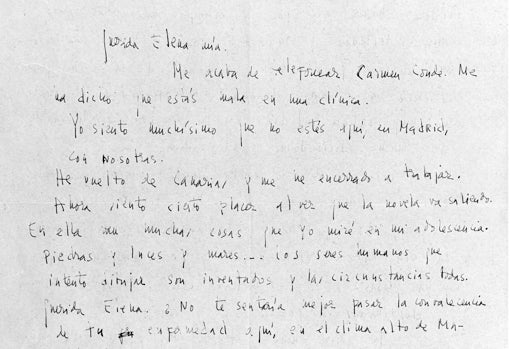 Querida Elena mía.
Me acaba de telefonear Carmen Conde. Me
ha dicho que estás mala en una clínica.
Yo siento muchísimo que no estés aquí, en Madrid,
con nosotras.
He vuelto de Canarias, y me he encerrado a trabajar.
Ahora siento cierto placer al ver que la novela va saliendo.
En ella van muchas cosas que yo miré en mi adolescencia.
Piedras y luces y mares... Los seres humanos que
intento dibujar son inventados y las circunstancias todas.
Querida Elena. ¿No te sentaría mejor pasar la convalecencia
de tu enfermedad aquí, en el clima alto de Ma-